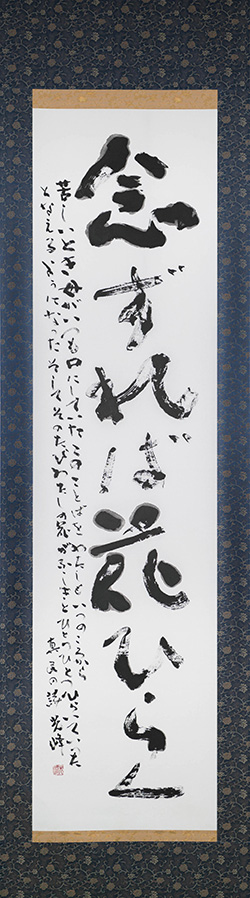 念ずれば花ひらく
苦しいとき母がいつも口にしていたこのことばをわたしもいつのころから
となえるようになったそしてそのたびわたしの花がふしぎとひとつひとつひらいていった
真民の詩